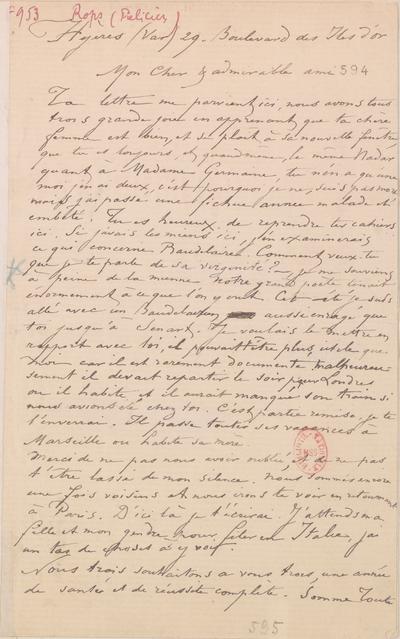 953 Rops (Félicien)
Hyeres (Var) 29. Boulevard des Iles d'or
Mon Cher & admirable ami 594
Ta lettre me parvient ici, nous avons tous
trois grande joie en apprenant que ta chère
femme est bien, et se plait à sa nouvelle fenêtre
que tu es toujours, et quand même, le même Nadar
quant à Madame Germaine, tu n'en a qu'une
moi j'en ai deux, c'est pourquoi je ne suis pas mort
mais j'ai passé une fichue année malade et
embêté. Tu es heureux de reprendre tes cahiers
ici. Si j'avais les miens ici, j'en examinerais
ce qui concerne Baudelaire. Comment veux-tu
que je te parle de sa virginité? je me souviens
à peine de la mienne. Notre grand poète tenait
énormément à ce que l'on y crut. Cet été je suis
allé avec un Baudelairien aussi enragé que
toi jusqu'à Senart. Je voulais le mettre en
rapport avec toi, il pouvait être plus utile que
moi car il est rarement documenté malheureu
sement il devait repartir le soir pour Londres
ou il habite, et il aurait manqué son train si
nous avions été chez toi. C'est partie remise, je te
l'enverrai. Il passe toutes ses vacances à
Marseille ou habite sa mère.
Merci de ne pas nous avoir oublié, et de ne pas
t'être lassé de mon silence. Nous sommes encore
une fois voisins et nous irons te voir en retournant
à Paris. D'ici là je t'écrirai. J'attends ma
fille et mon gendre pour filer en Italie, j'ai
un tas de choses à y voir.
Nous trois souhaitons a vous trois, une année
de santé et de réussite complète. Somme toute
595